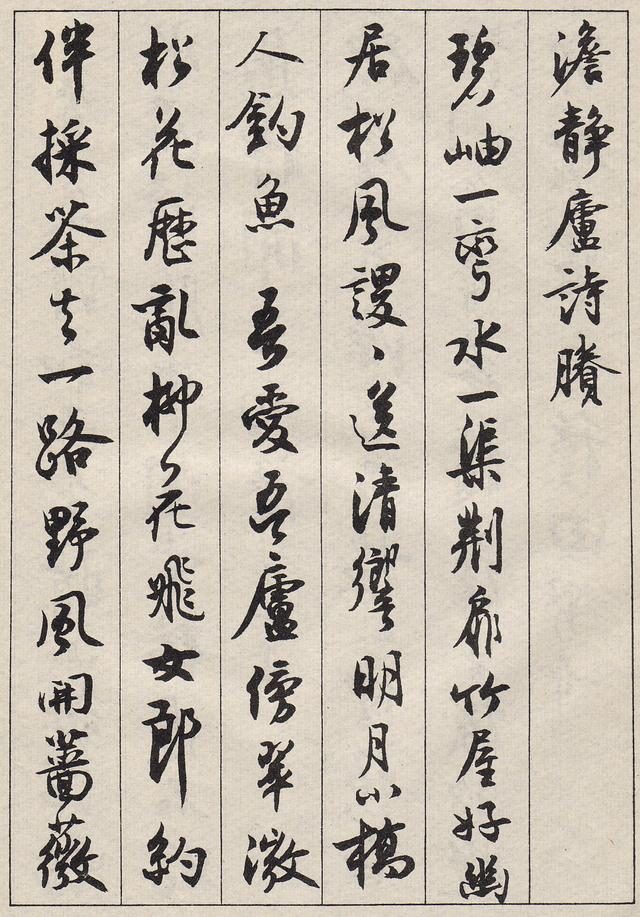 澹静廬詩賸
碧岫一弯水一渠荆扉竹屋好幽
居松風謖、送清響明月小橋
人釣魚 吾愛吾廬傍翠微
松花歷亂柳花飛女郎約
伴採茶去一路野風開薔薇